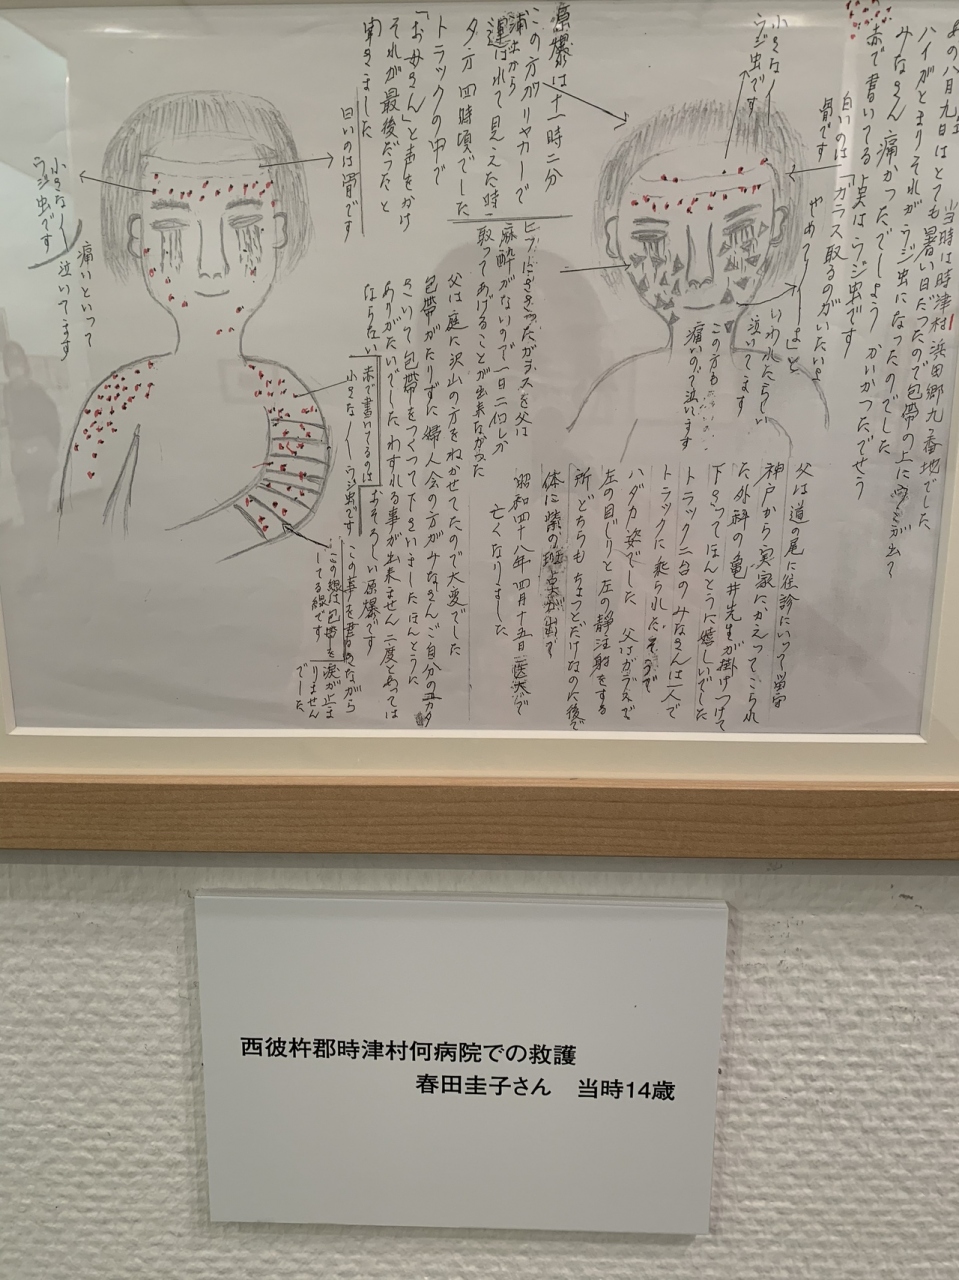 当時は時津村浜田郷九っ番地でした
あの八月九日はとても暑い日だったので包帯の上に
ハイがとまりそれがウジ虫になったのでした
みなさん痛かったでしょう かいかったでせう
赤で書いてる点はウジ虫です
白いのは骨です
「ガラス取るのがいたいよ
やめて
いわれたらしい
泣いてます
この方も
痛いので泣います
小さなウジ虫です
原爆は十一時二分
この方がリヤカーで
浦上から
運ばれて見えた時
夕方四時頃でした
トラックの中で
「お母さん」と声をかけ
それが最後だったと
聞きました
白いのは骨です
小さなウジ虫です
痛いといって
泣いてます
ヒフにささったガラスを父は
麻酔がないので一日二位しか
取ってあげることが出来なかった
父は庭に沢山の方をねかせてたので大変でした
包帯がたりずに婦人会の方がみなさんご自分のユカタ
さいて包帯をつくって下さいましたほんとうに
ありがたいでしたわすれる事が出来ません二度とあっては
ならない
おそろしい原爆です
この事を書きながら
涙が止まりませんでした
赤で書いてるのは
小さなウジ虫です
この線は包帯をしてる線です
父は道の尾に往診にいって留守
神戸から実家にかえってこられ
た外科の亀井先生が掛けつけて
下さってほんとうに嬉しいでした
トラック二台のみなさんは一人で
トラックに乗られたそうで
ハダカ姿でした 父はガラスで
左の目じりと左の静注射をする
所どちらもちょっとだけなのに後で
体に紫の斑点が出て
昭和四十八年四月十五日 医大で
亡くなりました
西彼杵郡時津村何病院での救護
春田圭子さん 当時14歳